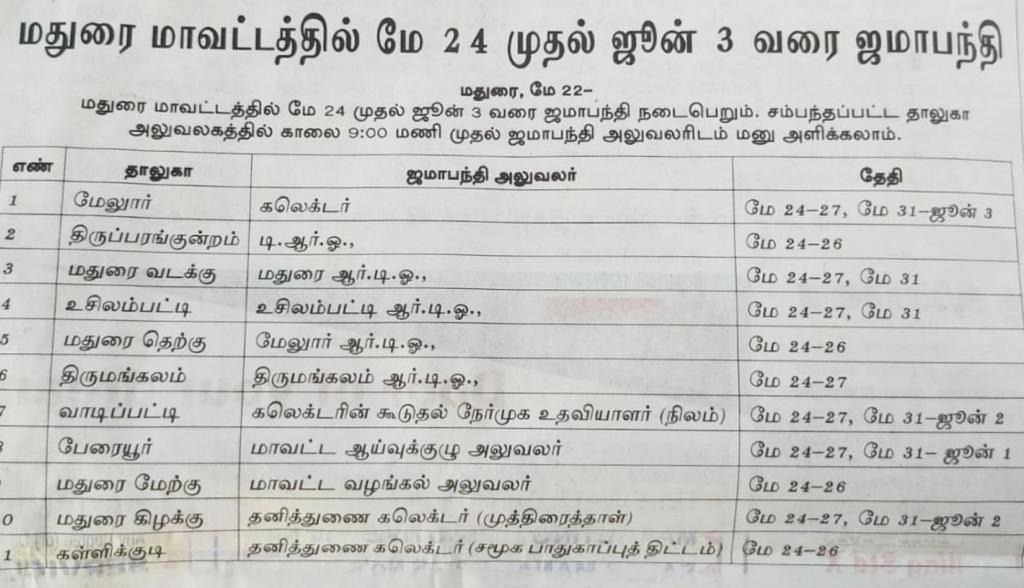 மதுரை மாவட்டத்தில் மே 24 முதல் ஜூன் 3 வரை ஜமாபந்தி
மதுரை, மே 22–
மதுரை மாவட்டத்தில் மே 24 முதல் ஜூன் 3 வரை ஜமாபந்தி நடைபெறும். சம்பந்தப்பட்ட தாலுகா
அலுவலகத்தில் காலை 9:00 மணி முதல் ஜமாபந்தி அலுவலரிடம் மனு அளிக்கலாம்.
எண் தாலுகா ஜமாபந்தி அலுவலர் தேதி
1 மேலுார் கலெக்டர் மே 24–27, மே 31–ஜூன் 3
2 திருப்பரங்குன்றம் டி.ஆர்.ஓ., மே 24–26
3 மதுரை வடக்கு மதுரை ஆர்.டி.ஓ., மே 24–27, மே 31
4 உசிலம்பட்டி உசிலம்பட்டி ஆர்.டி.ஓ., மே 24–27, மே 31
5 மதுரை தெற்கு மேலுார் ஆர்.டி.ஓ., மே 24–26
6 திருமங்கலம் திருமங்கலம் ஆர்.டி.ஓ., மே 24–27
7 வாடிப்பட்டி கலெக்டரின் கூடுதல் நேர்முக உதவியாளர் (நிலம்) மே 24–27, மே 31–ஜூன் 2
பேரையூர் மாவட்ட ஆய்வுக்குழு அலுவலர் மே 24–27, மே 31– ஜூன் 1
மதுரை மேற்கு மாவட்ட வழங்கல் அலுவலர் மே 24–26
0 மதுரை கிழக்கு தனித்துணை கலெக்டர் (முத்திரைத்தாள்) மே 24–27, மே 31–ஜூன் 2
1 கள்ளிக்குடி தனித்துணை கலெக்டர் (சமூக பாதுகாப்புத் திட்டம்) மே 24–26